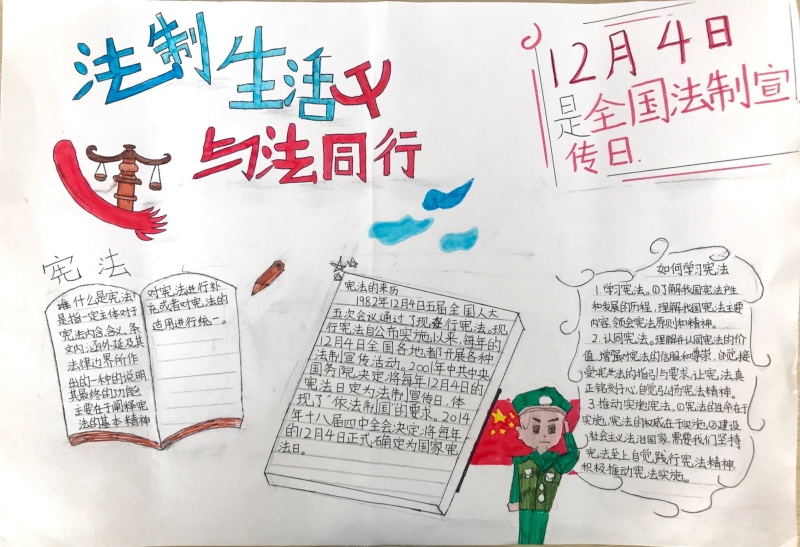 法制生活
与法同行
12月4日
是全国法制宣
传日.
宪法
谁什么是宪法?
是指一定主体对于
宪法内容、含义、条
文内涵外延及其
法律边界所作
出的一种的说明,
其最终的功能
主要在于阐释宪
法的基本精神
对宪法进行补
充或者对宪法的
适用进行统一。
宪法的来历
1982年12月4日五届全国人大
五次会议通过了现行宪法。现
行宪法自公布实施以来,每年的
12月4日全国各地都开展各种
法制宣传活动。2001年中共中央
国务院决定,将每年12月4日的
宪法日定为法制宣传日,体
现了"依法制国"的要求。2014
年十八届四中全会决定:将每年
的12月4日正式确定为国家宪
法日。
如何学习宪法
1.学习宪法。①了解我国宪法产生
和发展的历程,理解我国宪法主要
内容,领会宪法原则和精神。
2.认同宪法。理解并认同宪法的价
值,增强对宪法的信服和尊崇,自觉接
受宪法的指引与要求,让宪法真
正铭刻于心,自觉弘扬宪法精神。
3.推动实施宪法。①宪法的生命在于
实施,宪法的权威在于实施。②建设
社会主义法治国家,需要我们坚持
宪法至上,自觉践行宪法精神,
积极推动宪法实施。